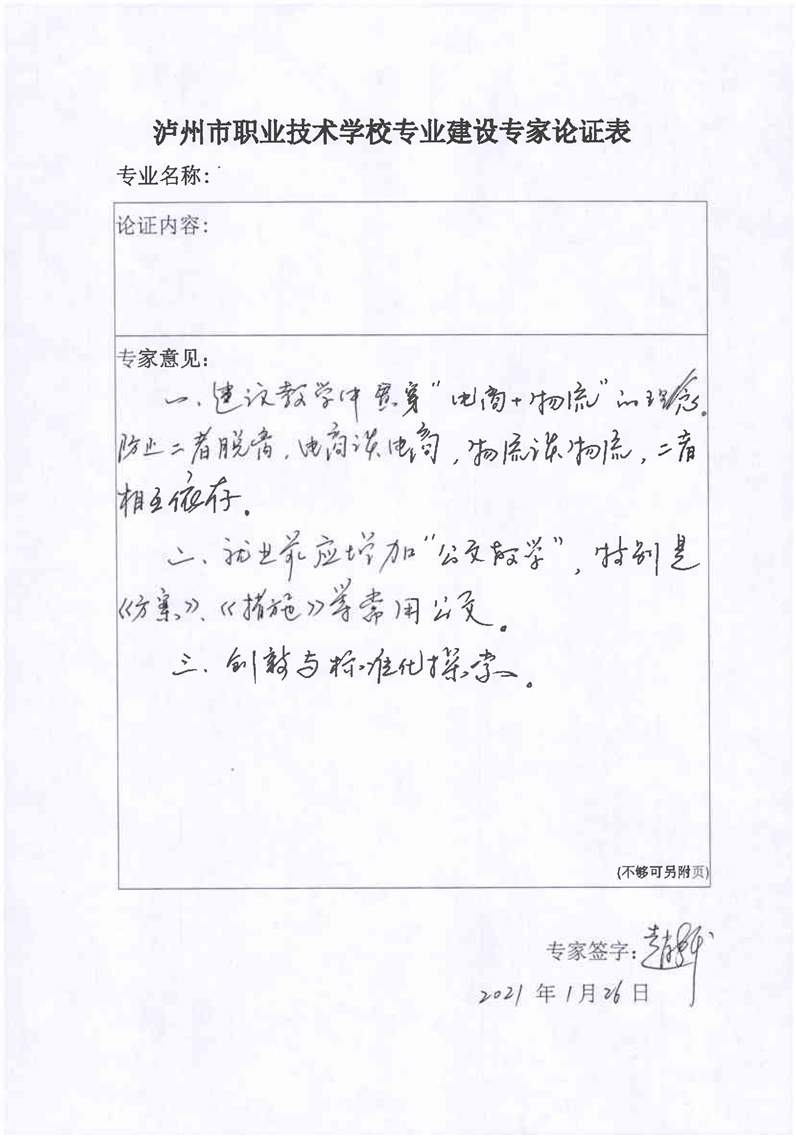 泸州市职业技术学校专业建设专家论证表
专业名称：
论证内容：
专家意见：
一、建议教学中贯穿“电商+物流”的理念。
防止二者脱离，电商谈电商，物流谈物流，二者
相互依存。
二、就业前应增加“公文教学”，特别是
《方案》、《措施》等常用公文。
三、创新与标准化探索。
(不够可另附页)
专家签字：
2021 年 1 月 26 日